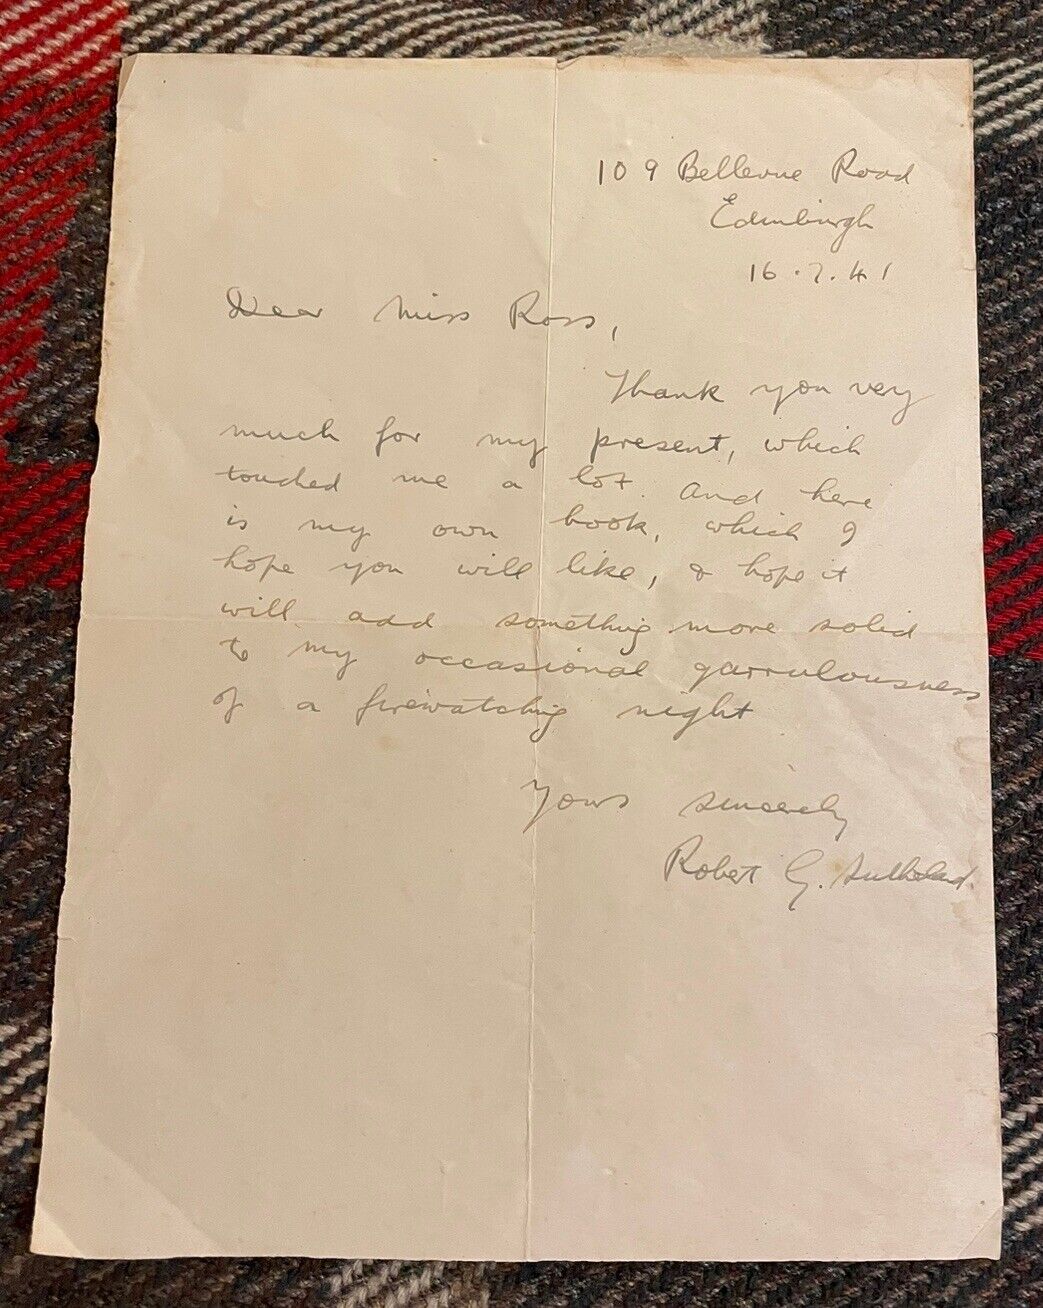 109 Bellevue Road
Edinburgh
16.7.41
Dear Miss Ross,
Thank you very
much for my present, which
touched me a lot. And here
is my own book, which I
hope you will like, & hope it
will add something more solid
to my occasional garrulousness
of a firewatching night
Yours sincerely
Robert G. Sutherland.